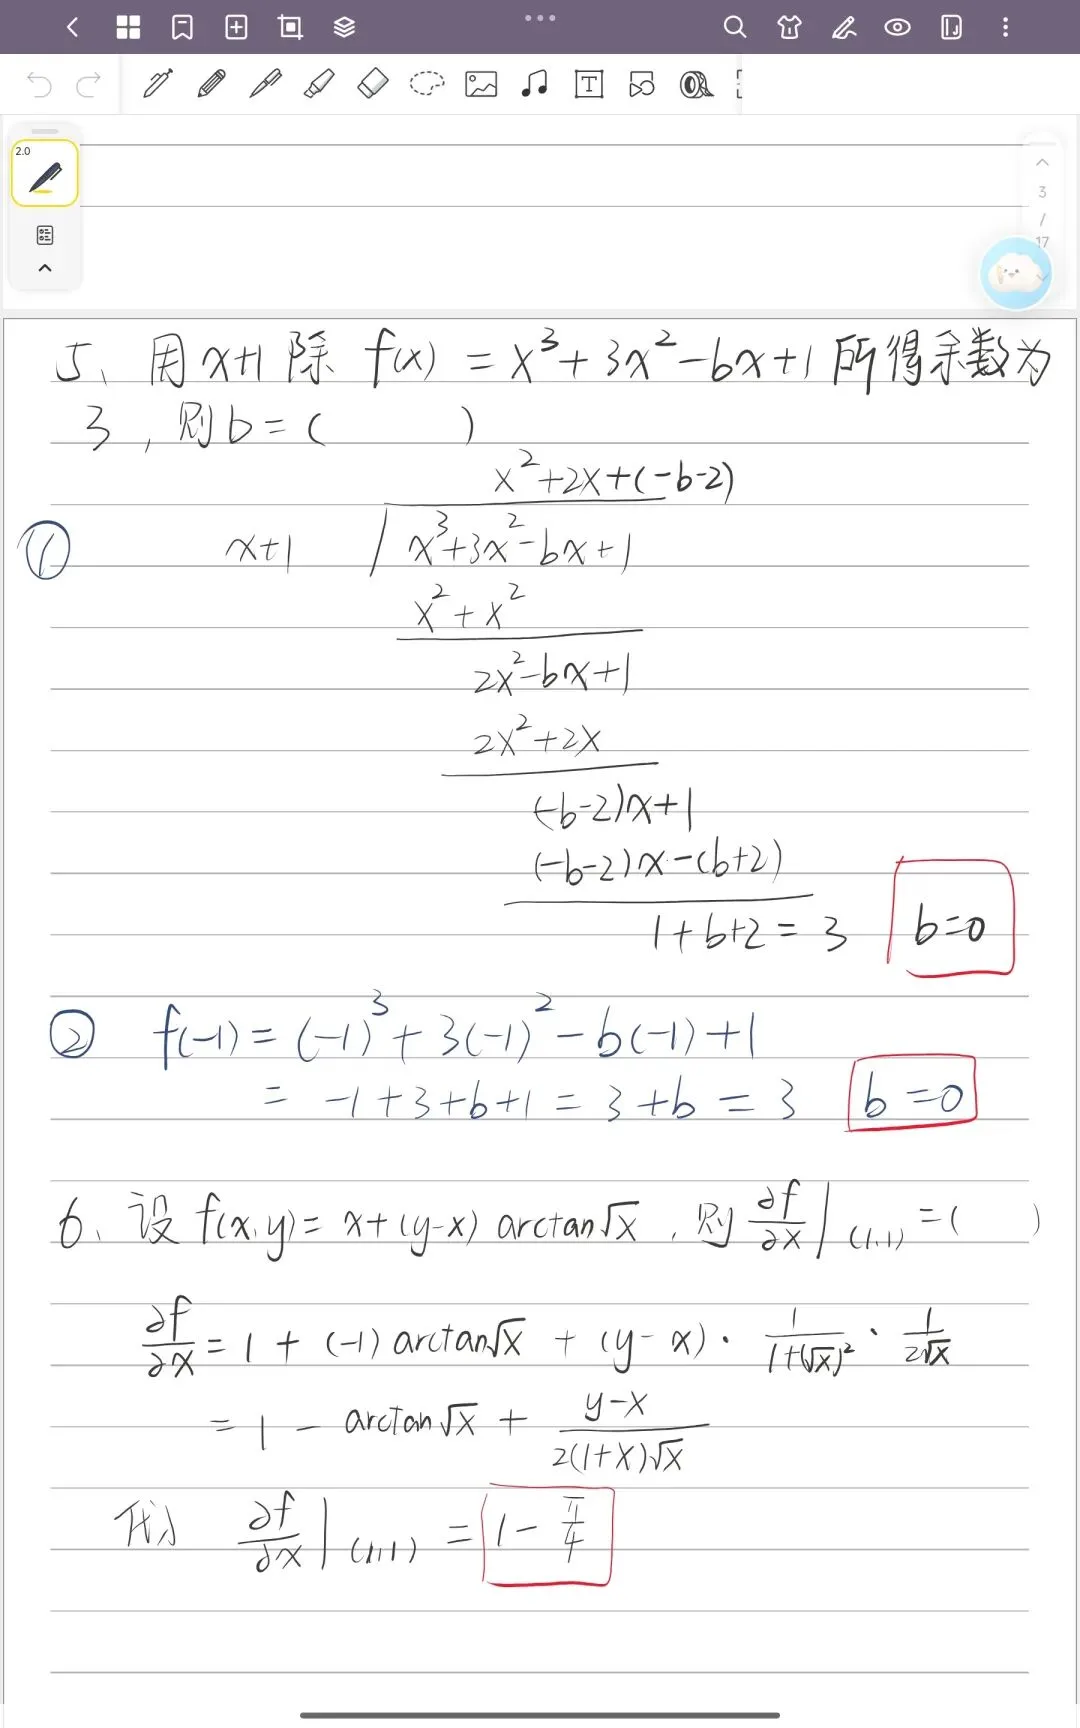 2.0
3
/
17
5、用x+1除 f(x) = x³+3x²-bx+1 所得余数为
3，则b=(    )
x²+2x+(-b-2)
① x+1 x³+3x²-bx+1
x²+x²
2x²-bx+1
2x²+2x
(-b-2)x+1
(-b-2)x-(b+2)
1+b+2=3 b=0
② f(-1)=(-1)³+3(-1)²-b(-1)+1
= -1+3+b+1=3+b=3 b=0
6、设 f(x,y)= x+(y-x) arctan√x，则 ∂f/∂x|(1,1) =(    )
∂f/∂x = 1 + (-1) arctan√x + (y-x)· 1/(1+(√x)²) · 1/(2√x)
= 1 - arctan√x + (y-x)/(2(1+x)√x)
代入 ∂f/∂x|(1,1) = 1 - π/4